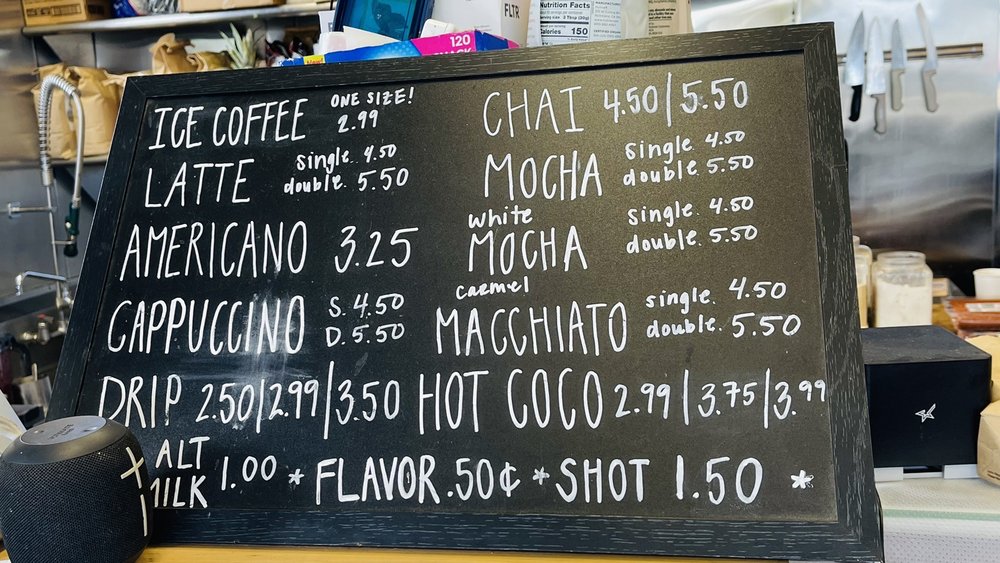 FLTR
Nutrition Facts
Calories 150
120
ICE COFFEE ONE SIZE! 2.99
LATTE single. 4.50 double. 5.50
AMERICANO 3.25
CAPPUCCINO S. 4.50 D. 5.50
DRIP 2.50/2.99/3.50
ALT MILK 1.00 * FLAVOR .50¢ * SHOT 1.50 *
CHAI 4.50/5.50
MOCHA single. 4.50 double. 5.50
white MOCHA single. 4.50 double. 5.50
carmel MACCHIATO single. 4.50 double. 5.50
HOT COCO 2.99/3.75/3.99